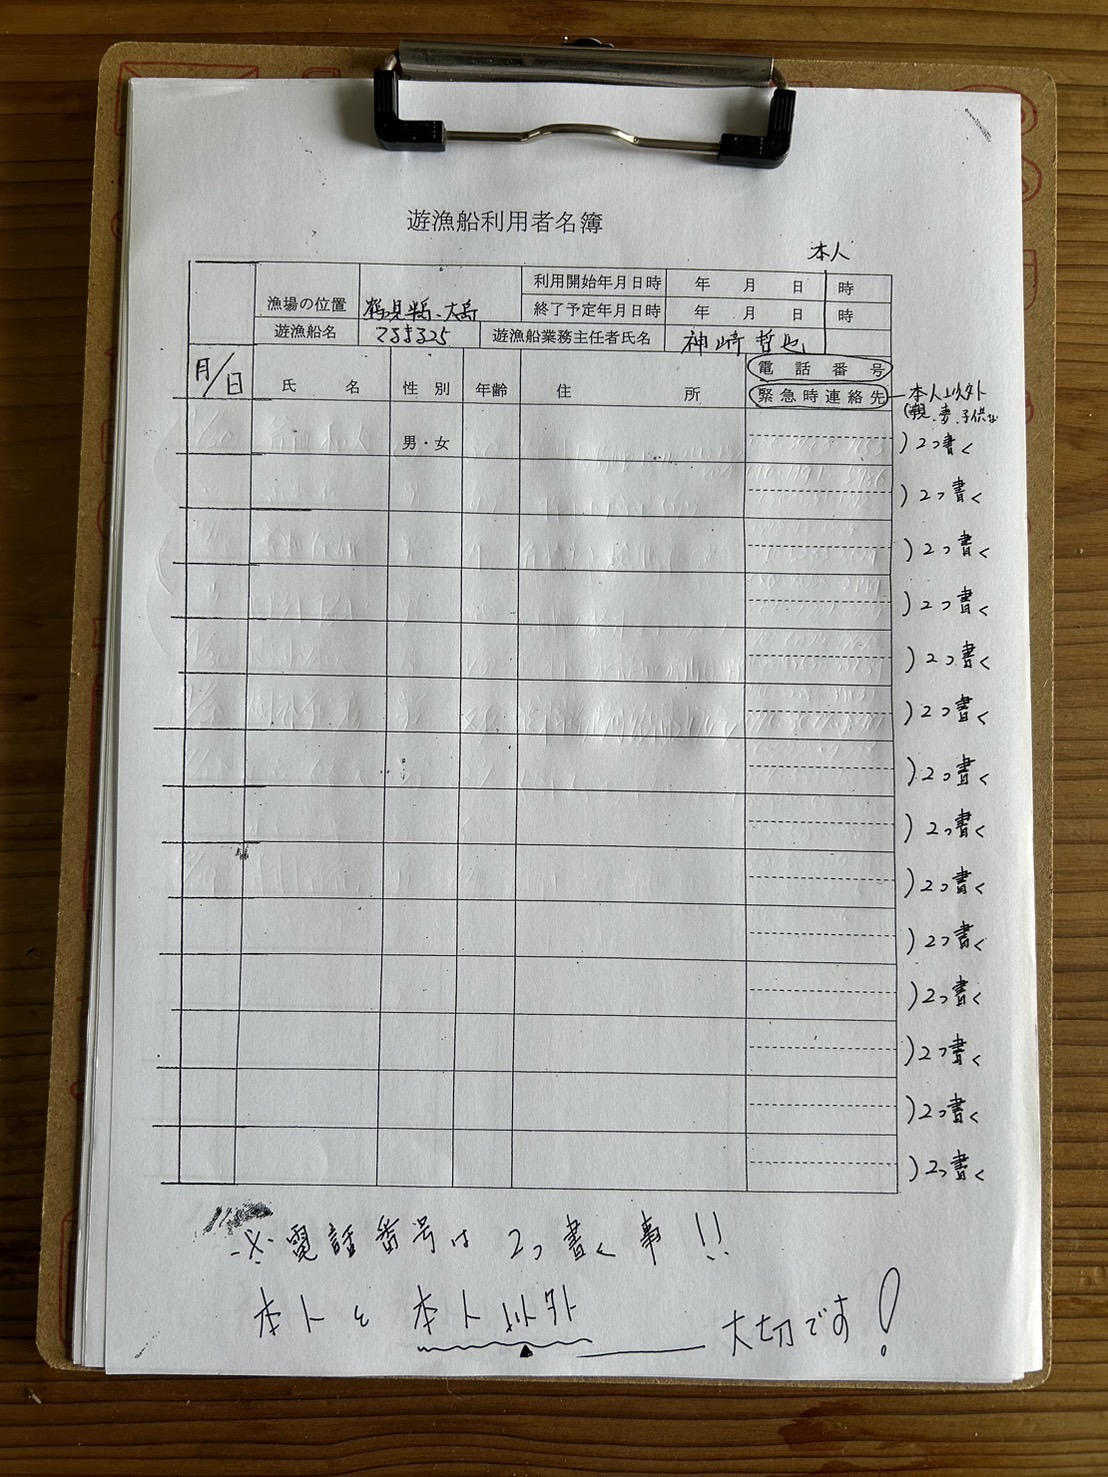 遊漁船利用者名簿
本人
漁場の位置 鶴見半島、大島 利用開始年月日時 年 月 日 時
終了予定年月日時 年 月 日 時
遊漁船名 てるまる25 遊漁船業務主任者氏名 神崎哲也
月/日 氏 名 性 別 年齢 住 所 電 話 番 号
緊急時連絡先 本人以外
(親、妻、子供など
男・女 )2つ書く
)2つ書く
)2つ書く
)2つ書く
)2つ書く
)2つ書く
)2つ書く
)2つ書く
)2つ書く
)2つ書く
)2つ書く
)2つ書く
)2つ書く
)2つ書く
※電話番号は2つ書く事!!
本人と本人以外 大切です!